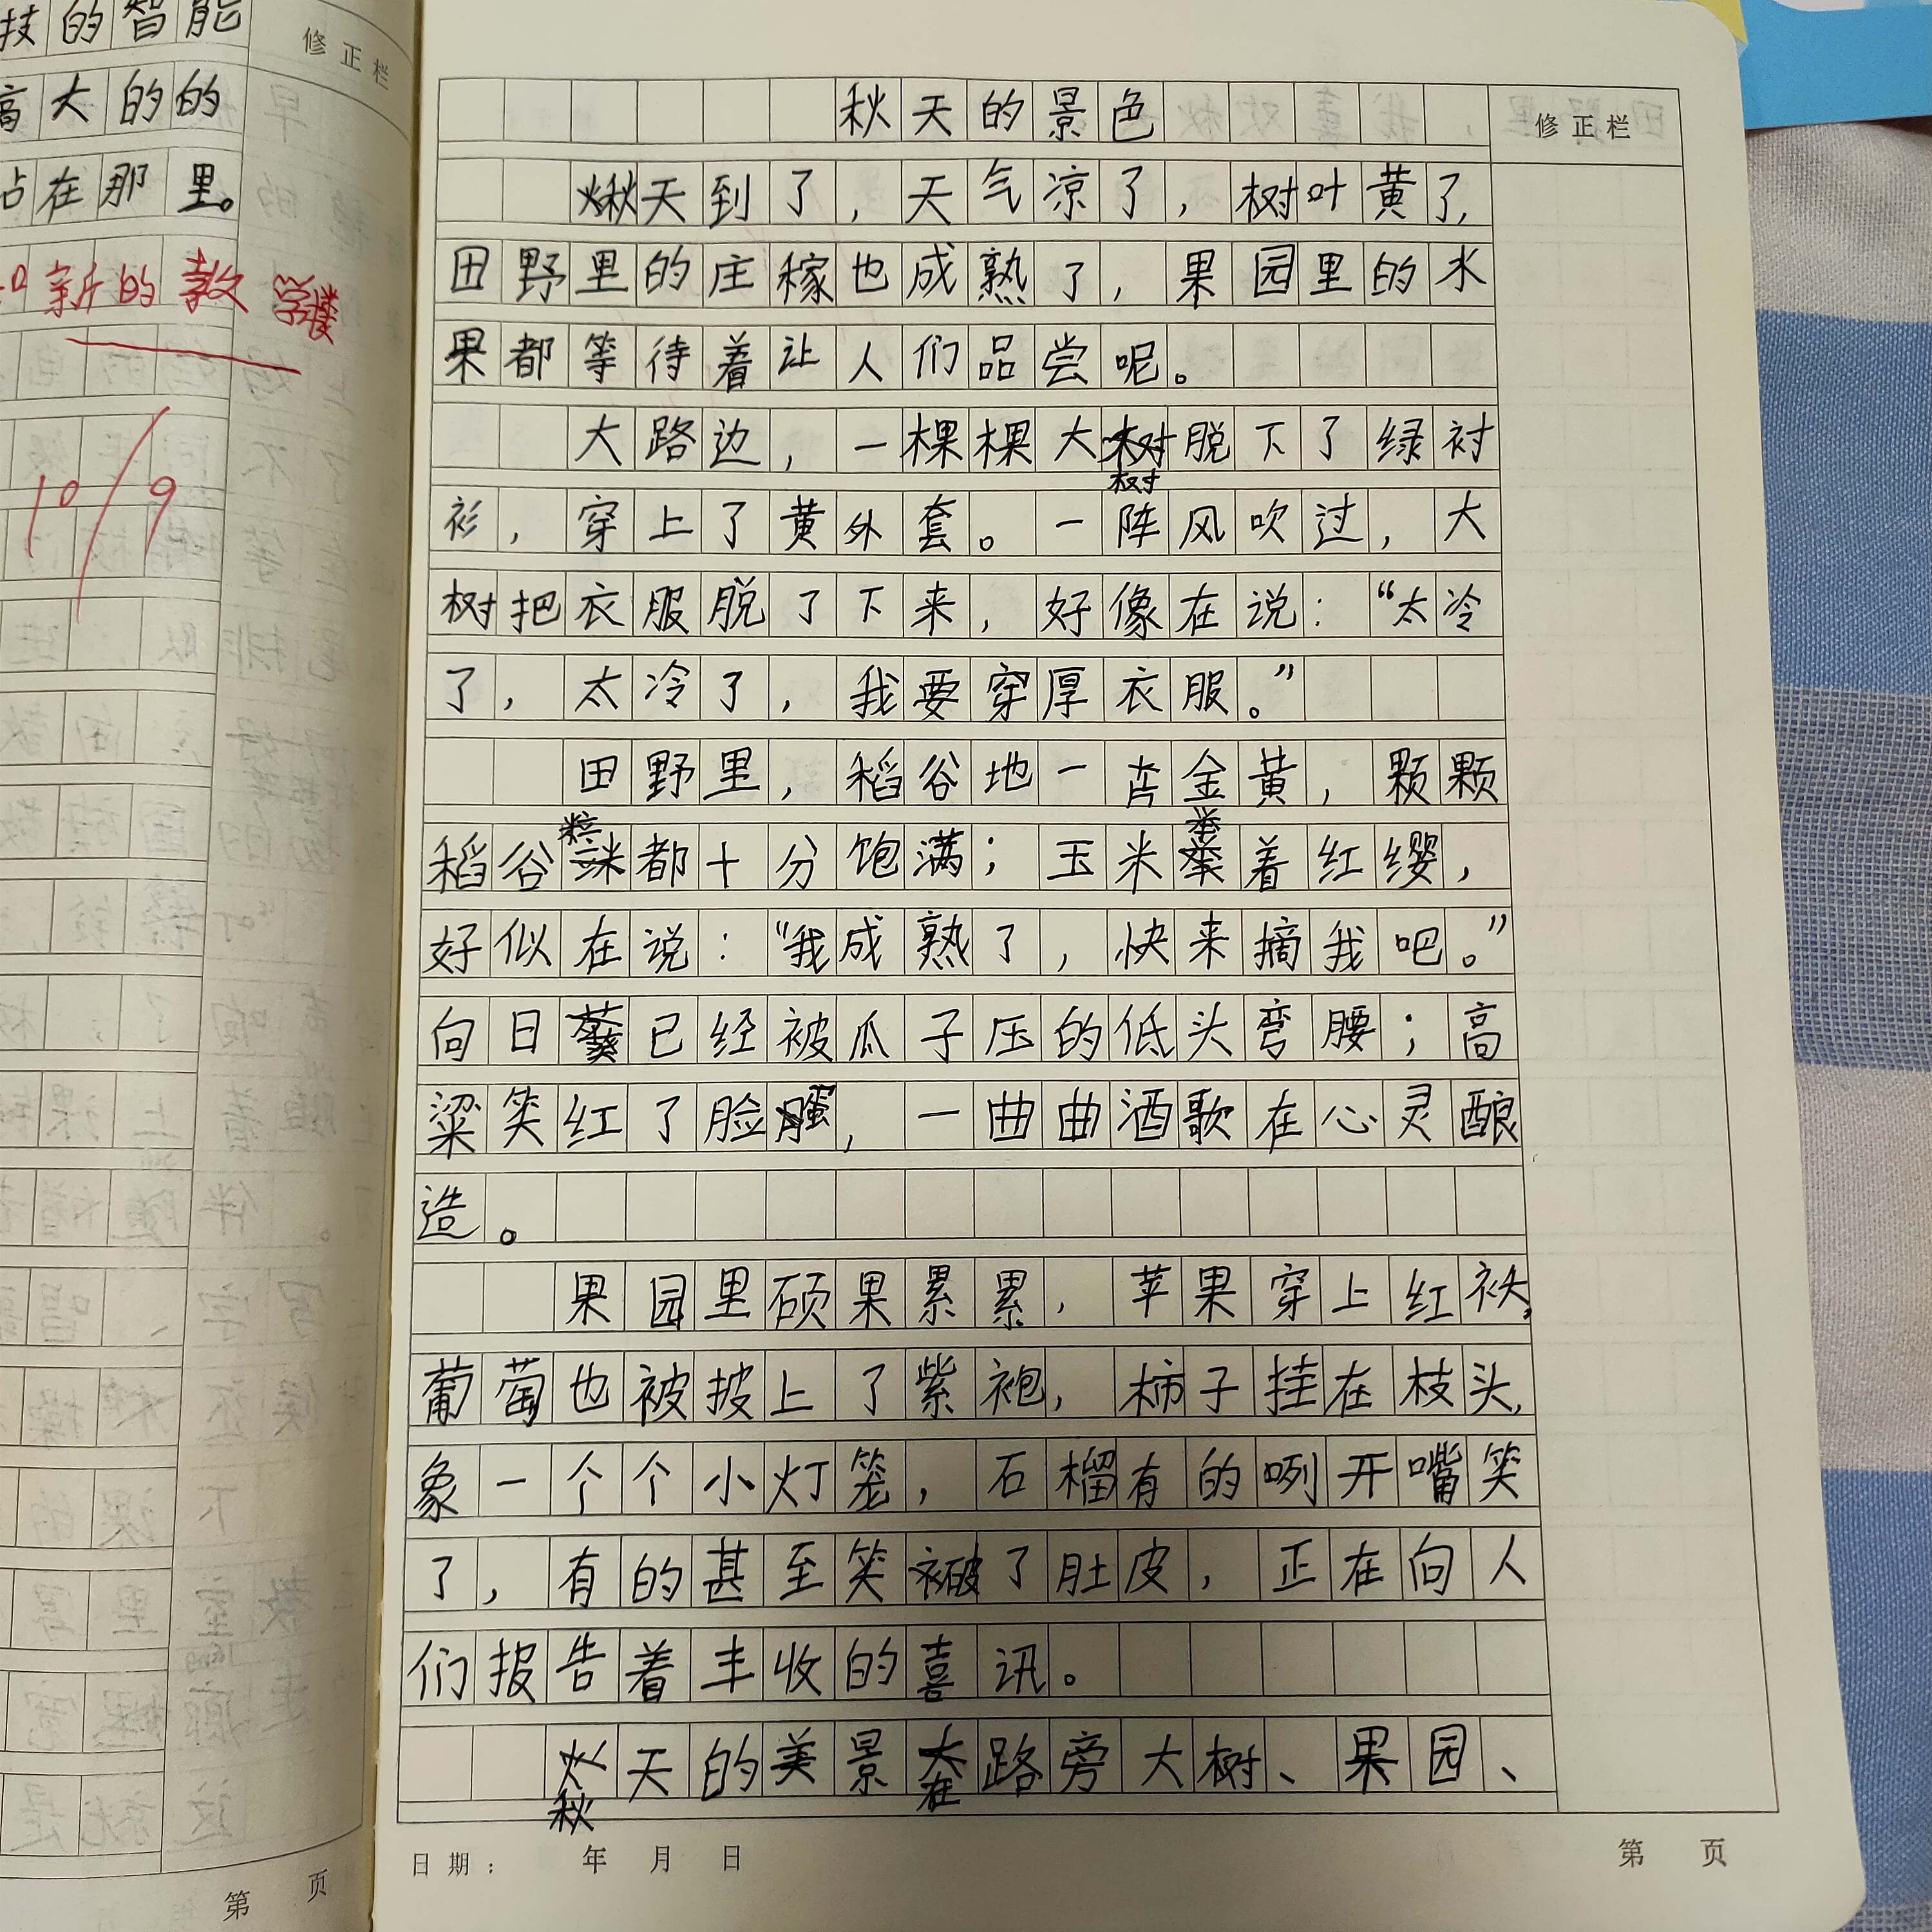 技的智能
高大的的
占在那里。
新的教学楼
10/9
修正栏
第 页
秋天的景色
修正栏
秋天到了，天气凉了，树叶黄了，
田野里的庄稼也成熟了，果园里的水
果都等待着让人们品尝呢。
大路边，一棵棵大树脱下了绿衬
衫，穿上了黄外套。一阵风吹过，大
树把衣服脱了下来，好像在说：“太冷
了，太冷了，我要穿厚衣服。”
田野里，稻谷地一片金黄，颗颗
稻谷粒都十分饱满；玉米举着红缨，
好似在说：“我成熟了，快来摘我吧。”
向日葵已经被瓜子压的低头弯腰；高
粱笑红了脸蛋，一曲曲酒歌在心灵酿
造。
果园里硕果累累，苹果穿上红袄，
葡萄也被披上了紫袍，柿子挂在枝头，
象一个个小灯笼，石榴有的咧开嘴笑
了，有的甚至笑破了肚皮，正在向人
们报告着丰收的喜讯。
秋天的美景在路旁大树、果园、
日期： 年 月 日
第 页